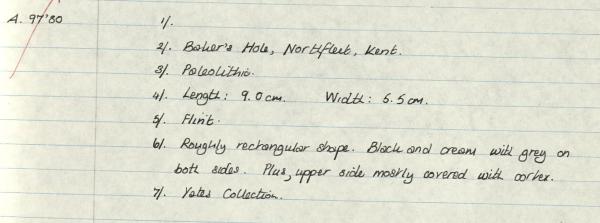 A. 97'80 1/.
2/. Baker's Hole, Northfleet, Kent.
3/. Paleolithic.
4/. Length: 9.0 cm. Width: 6.5 cm.
5/. Flint.
6/. Roughly rectangular shape. Black and cream with grey on
both sides. Plus, upper side mostly covered with cortex.
7/. Yates Collection.